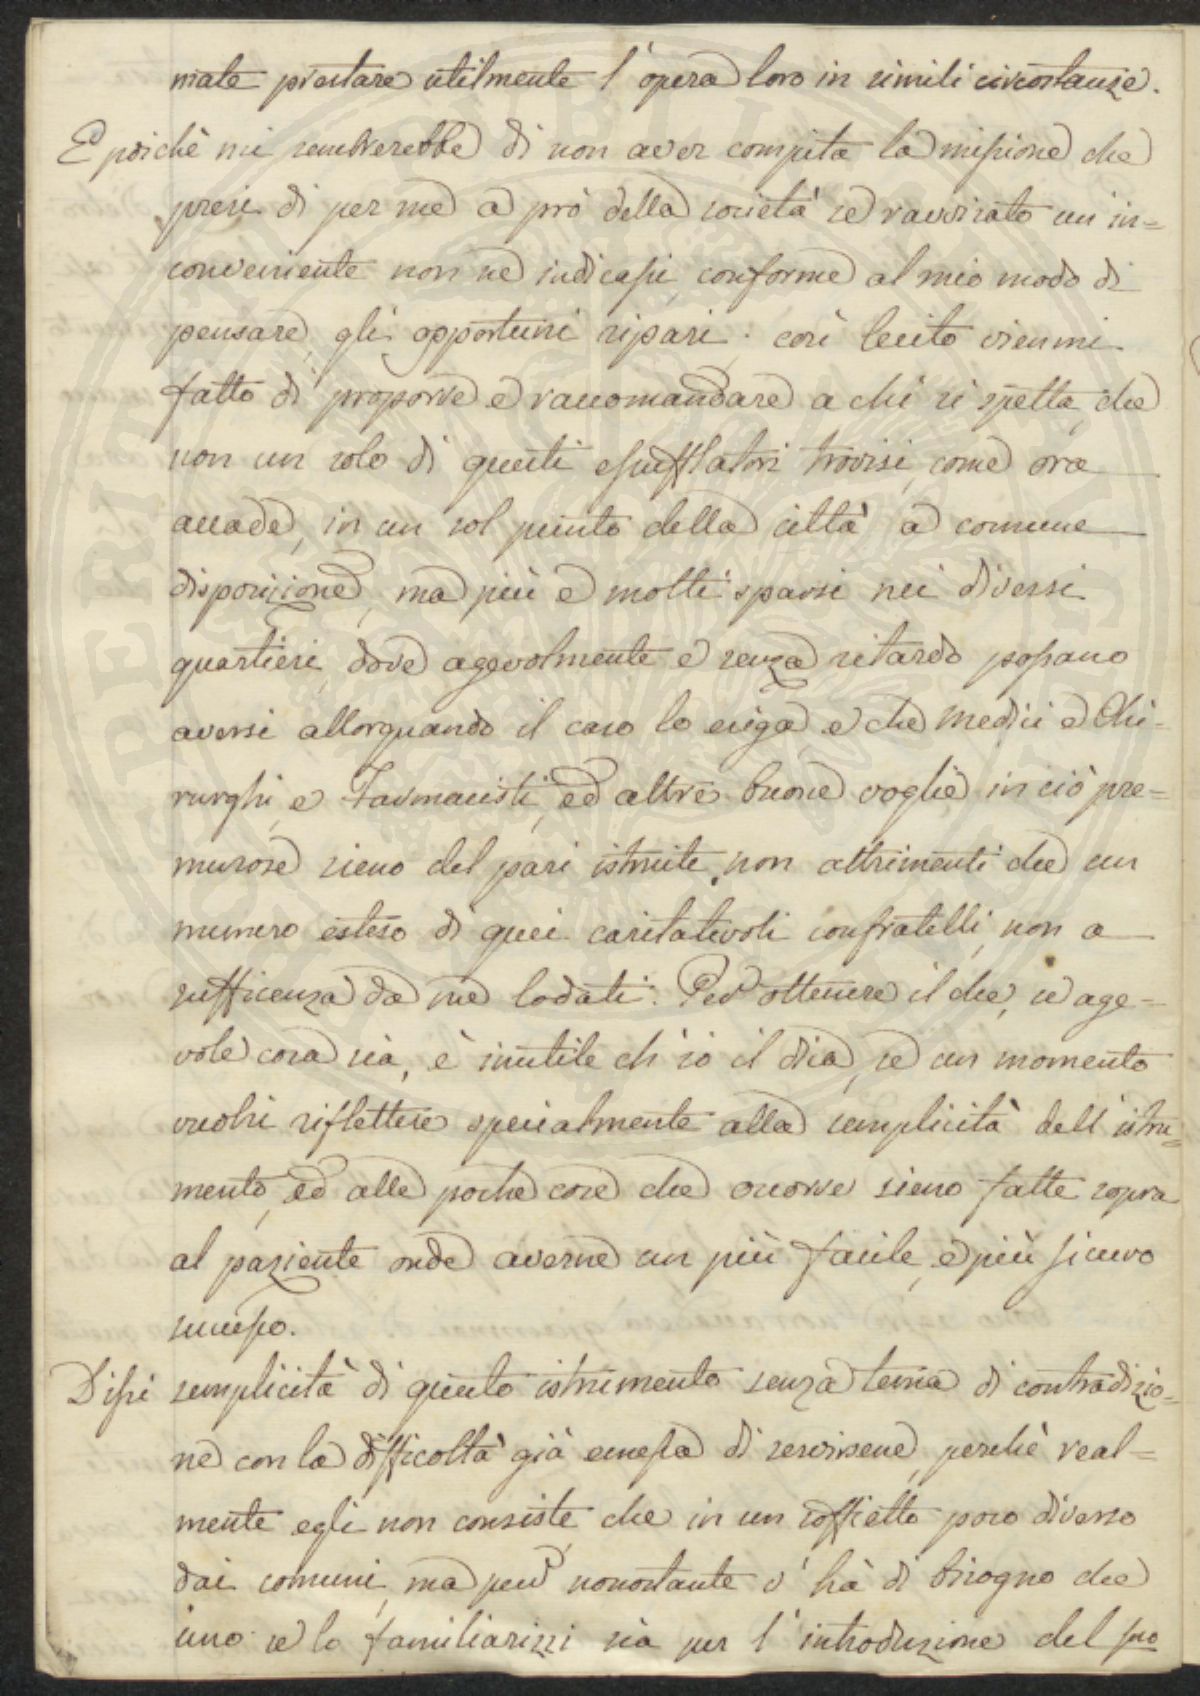 mate prestare utilmente l'opera loro in simili circostanze.
E poichè mi sembrerebbe di non aver compita la missione che
presi di per me a prò della società se ravvisato un in=
conveniente non ne indicassi, conforme al mio modo di
pensare, gli opportuni ripari; così lecito vienmi
fatto di proporre e raccomandare a chi si spetta, che
non un solo di questi esufflatori trovisi, come ora
accade, in un sol punto della città a comune
disposizione, ma più e molti sparsi nei diversi
quartieri, dove agevolmente e senza ritardo possano
aversi allorquando il caso lo esiga, e che Medici e Chi=
rurghi, e Farmacisti, ed altre buone voglie in ciò pre=
murose sieno del pari istruite, non altrimenti che un
numero esteso di quei caritatevoli confratelli, non a
sufficenza da me lodati. Per ottenere il che, se age=
vole cosa sia, è inutile ch'io il dica, se un momento
vuolsi riflettere specialmente alla semplicità dell'istru=
mento, ed alle poche cose che occorre sieno fatte sopra
al paziente onde averne un più facile, e più sicuro
successo.
Dissi semplicità di questo istrumento senza tema di contradizio=
ne con la difficoltà già emessa di servirsene, perchè real=
mente egli non consiste, che in un soffietto poco diverso
dai comuni, ma pur nonostante v'hà di bisogno che
uno se lo familiarizzi sia per l'introduzione del suo